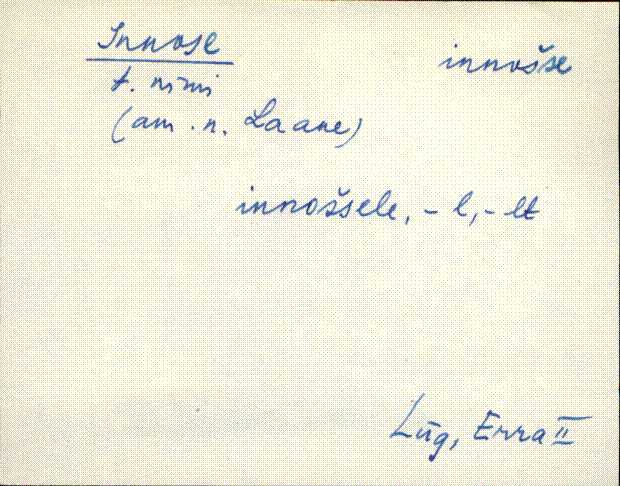 Innose
innošse
t. nimi
(am. n. Laane)
innošsele, -l, -lt
Lüg, Erra II